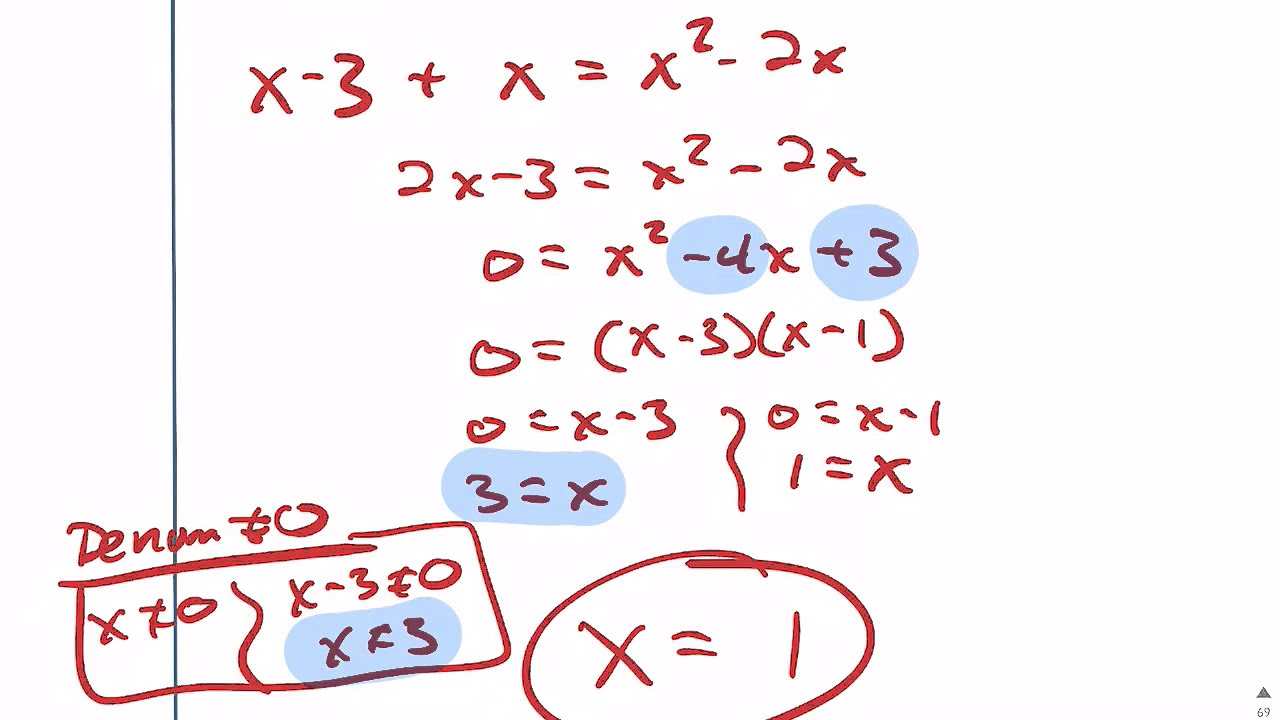 x-3 + x = x² - 2x
2x-3 = x² - 2x
0 = x² -4x +3
0 = (x-3)(x-1)
0 = x-3 } 0 = x-1
3 = x 1 = x
Denom ≠0
x ≠0 } x-3 ≠0
x ≠ 3
x = 1
69